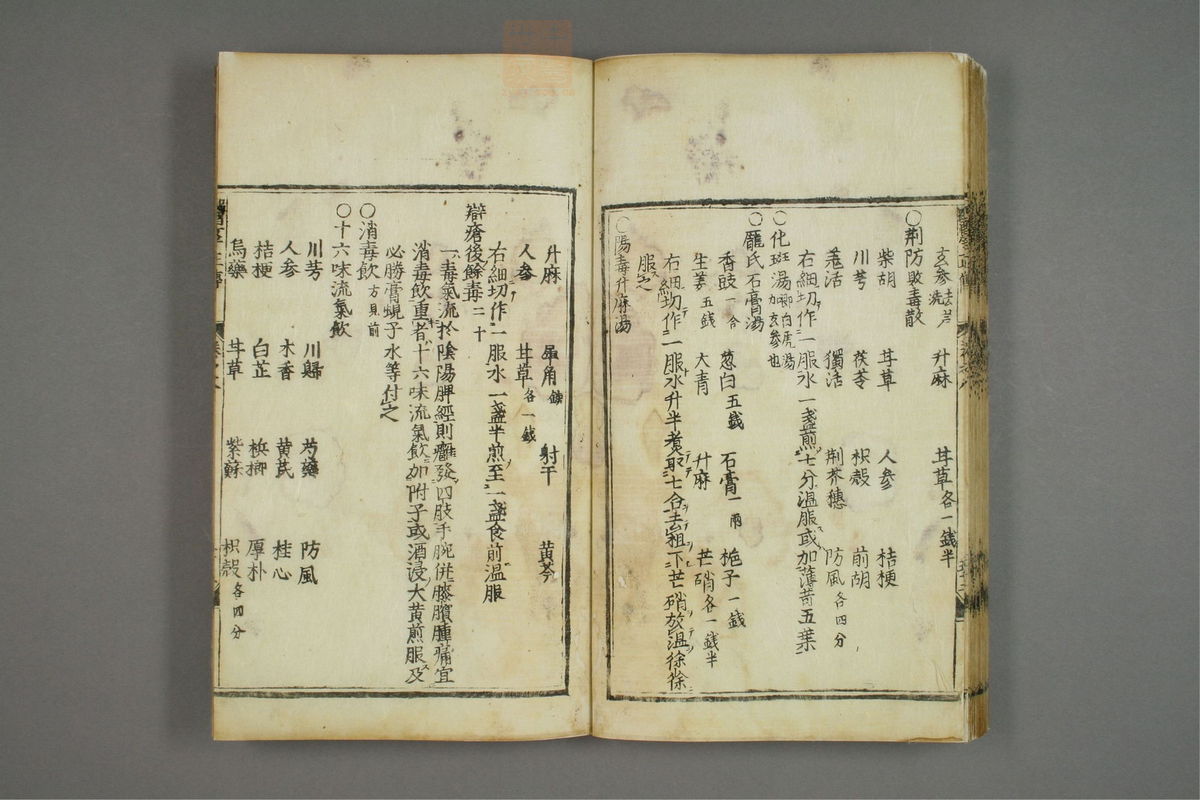 玄参 去芦洗 升麻 甘草 各一銭半
〇荆防敗毒散
柴胡 甘草 人参 桔梗
川芎 茯苓 枳殻 前胡
羗活 獨活 荆芥穗 防風 各四分
右細切作一服水一盞煎七分温服或加薄苛五葉
〇化斑湯 即白虎湯加玄参也
〇龐氏石膏湯
香豉 一合 葱白 五銭 石膏 一兩 梔子 一銭
生姜 五銭 大青 升麻 芒硝 各一銭半
右細切作一服水升半煮取七合去粗下芒硝放温徐徐
服之
〇陽毒升麻湯
升麻 犀角 鎊 射干 黄芩
人参 甘草 各一銭
右細切作一服水一盞半煎至一盞食前温服
辯瘡後餘毒二十
一毒氣流於陰陽脾經則癰發四肢手腕併膝臏腫痛宜
消毒飲重者十六味流氣飲加附子或酒浸大黄煎服及
必勝膏蜆子水等付之
〇消毒飲 方見前
〇十六味流氣飲
川芎 川歸 芍藥 防風
人参 木香 黄芪 桂心
桔梗 白芷 梹榔 厚朴
烏藥 甘草 紫蘇 枳殻 各四分